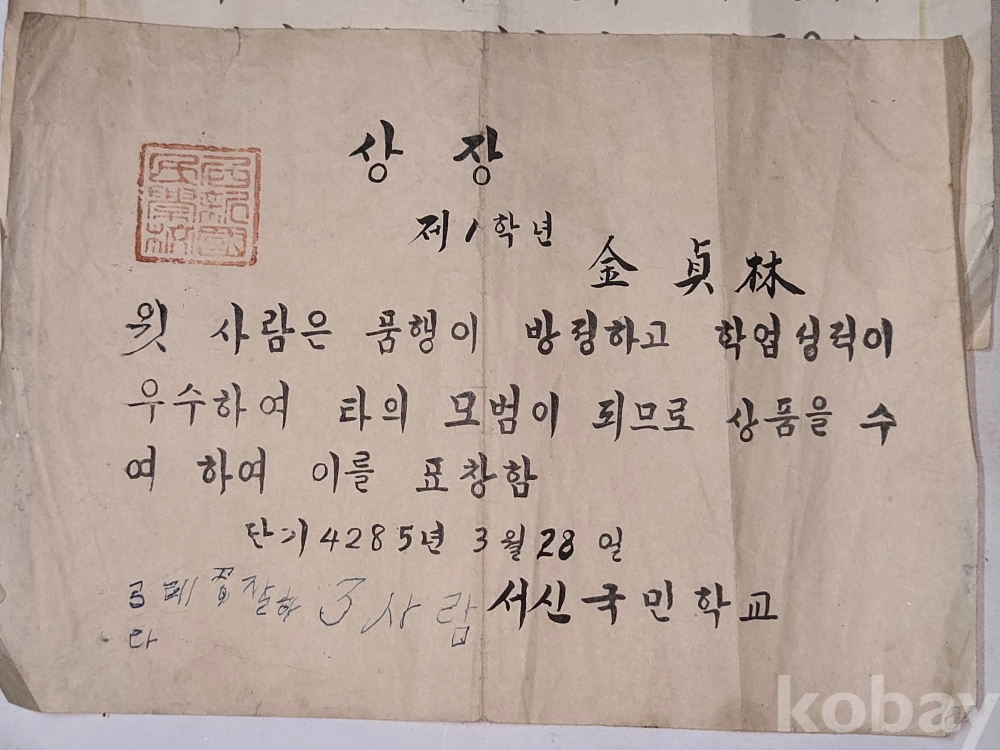 상 장
제1학년
金 貞 林
윗 사람은 품행이 방정하고 학업성적이
우수하여 타의 모범이 되므로 상품을 수
여 하여 이를 표창함
단기 4285년 3월 28일
서신국민학교
3 사람
다
西新國民學校
kobay